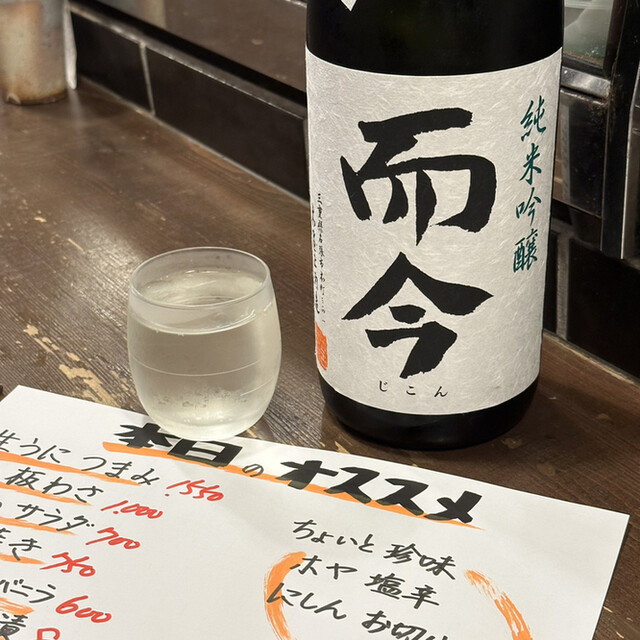 純米吟醸
而今
じこん
本日のオススメ
生うに つまみ 1550
板わさ 1.000
サラダ 700
き 750
バニラ 600
漬
ちょいと 珍味
ホヤ 塩辛
にしん お切り